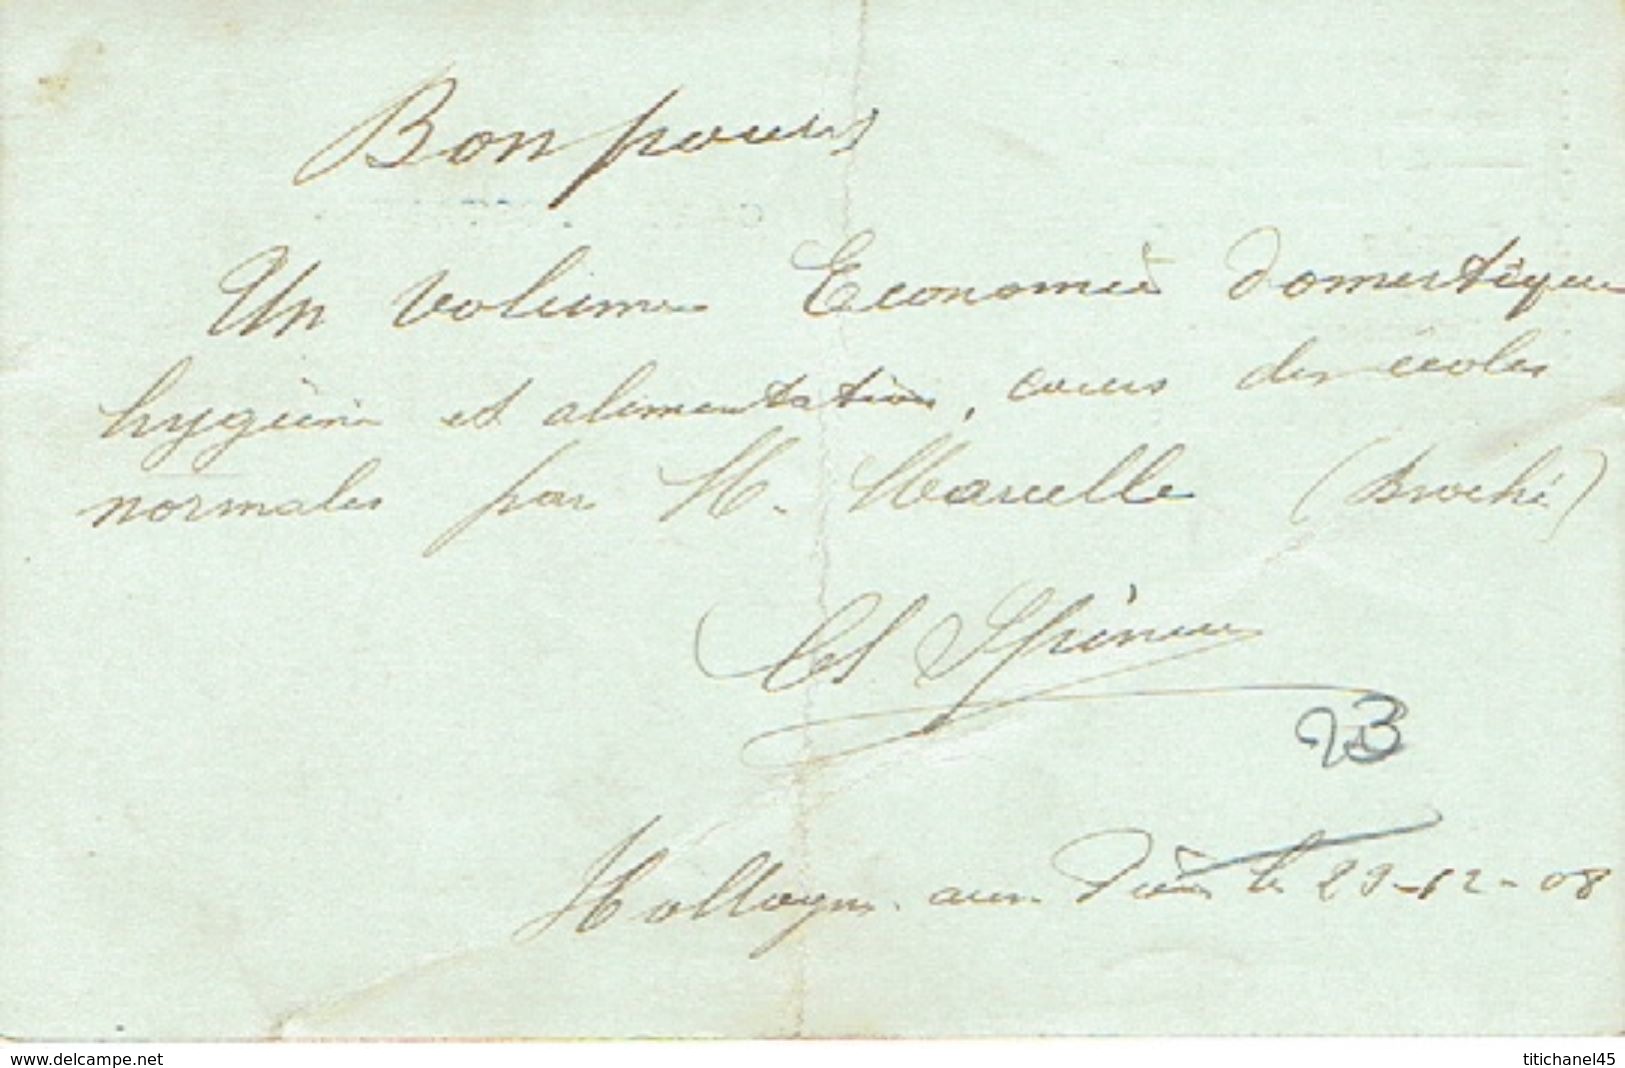 Bon pour
Un volume Economie domestique
hygiène et alimentation, cours des écoles
normales par M. Marcelle (Broché)
23
Hollogne aux Pierres le 29-12-08
www.delcampe.net
titichanel45